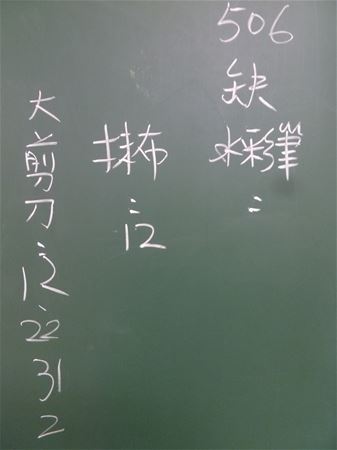 506
缺
水彩筆
:
抹布
:
12
大剪刀:12、22 31 2